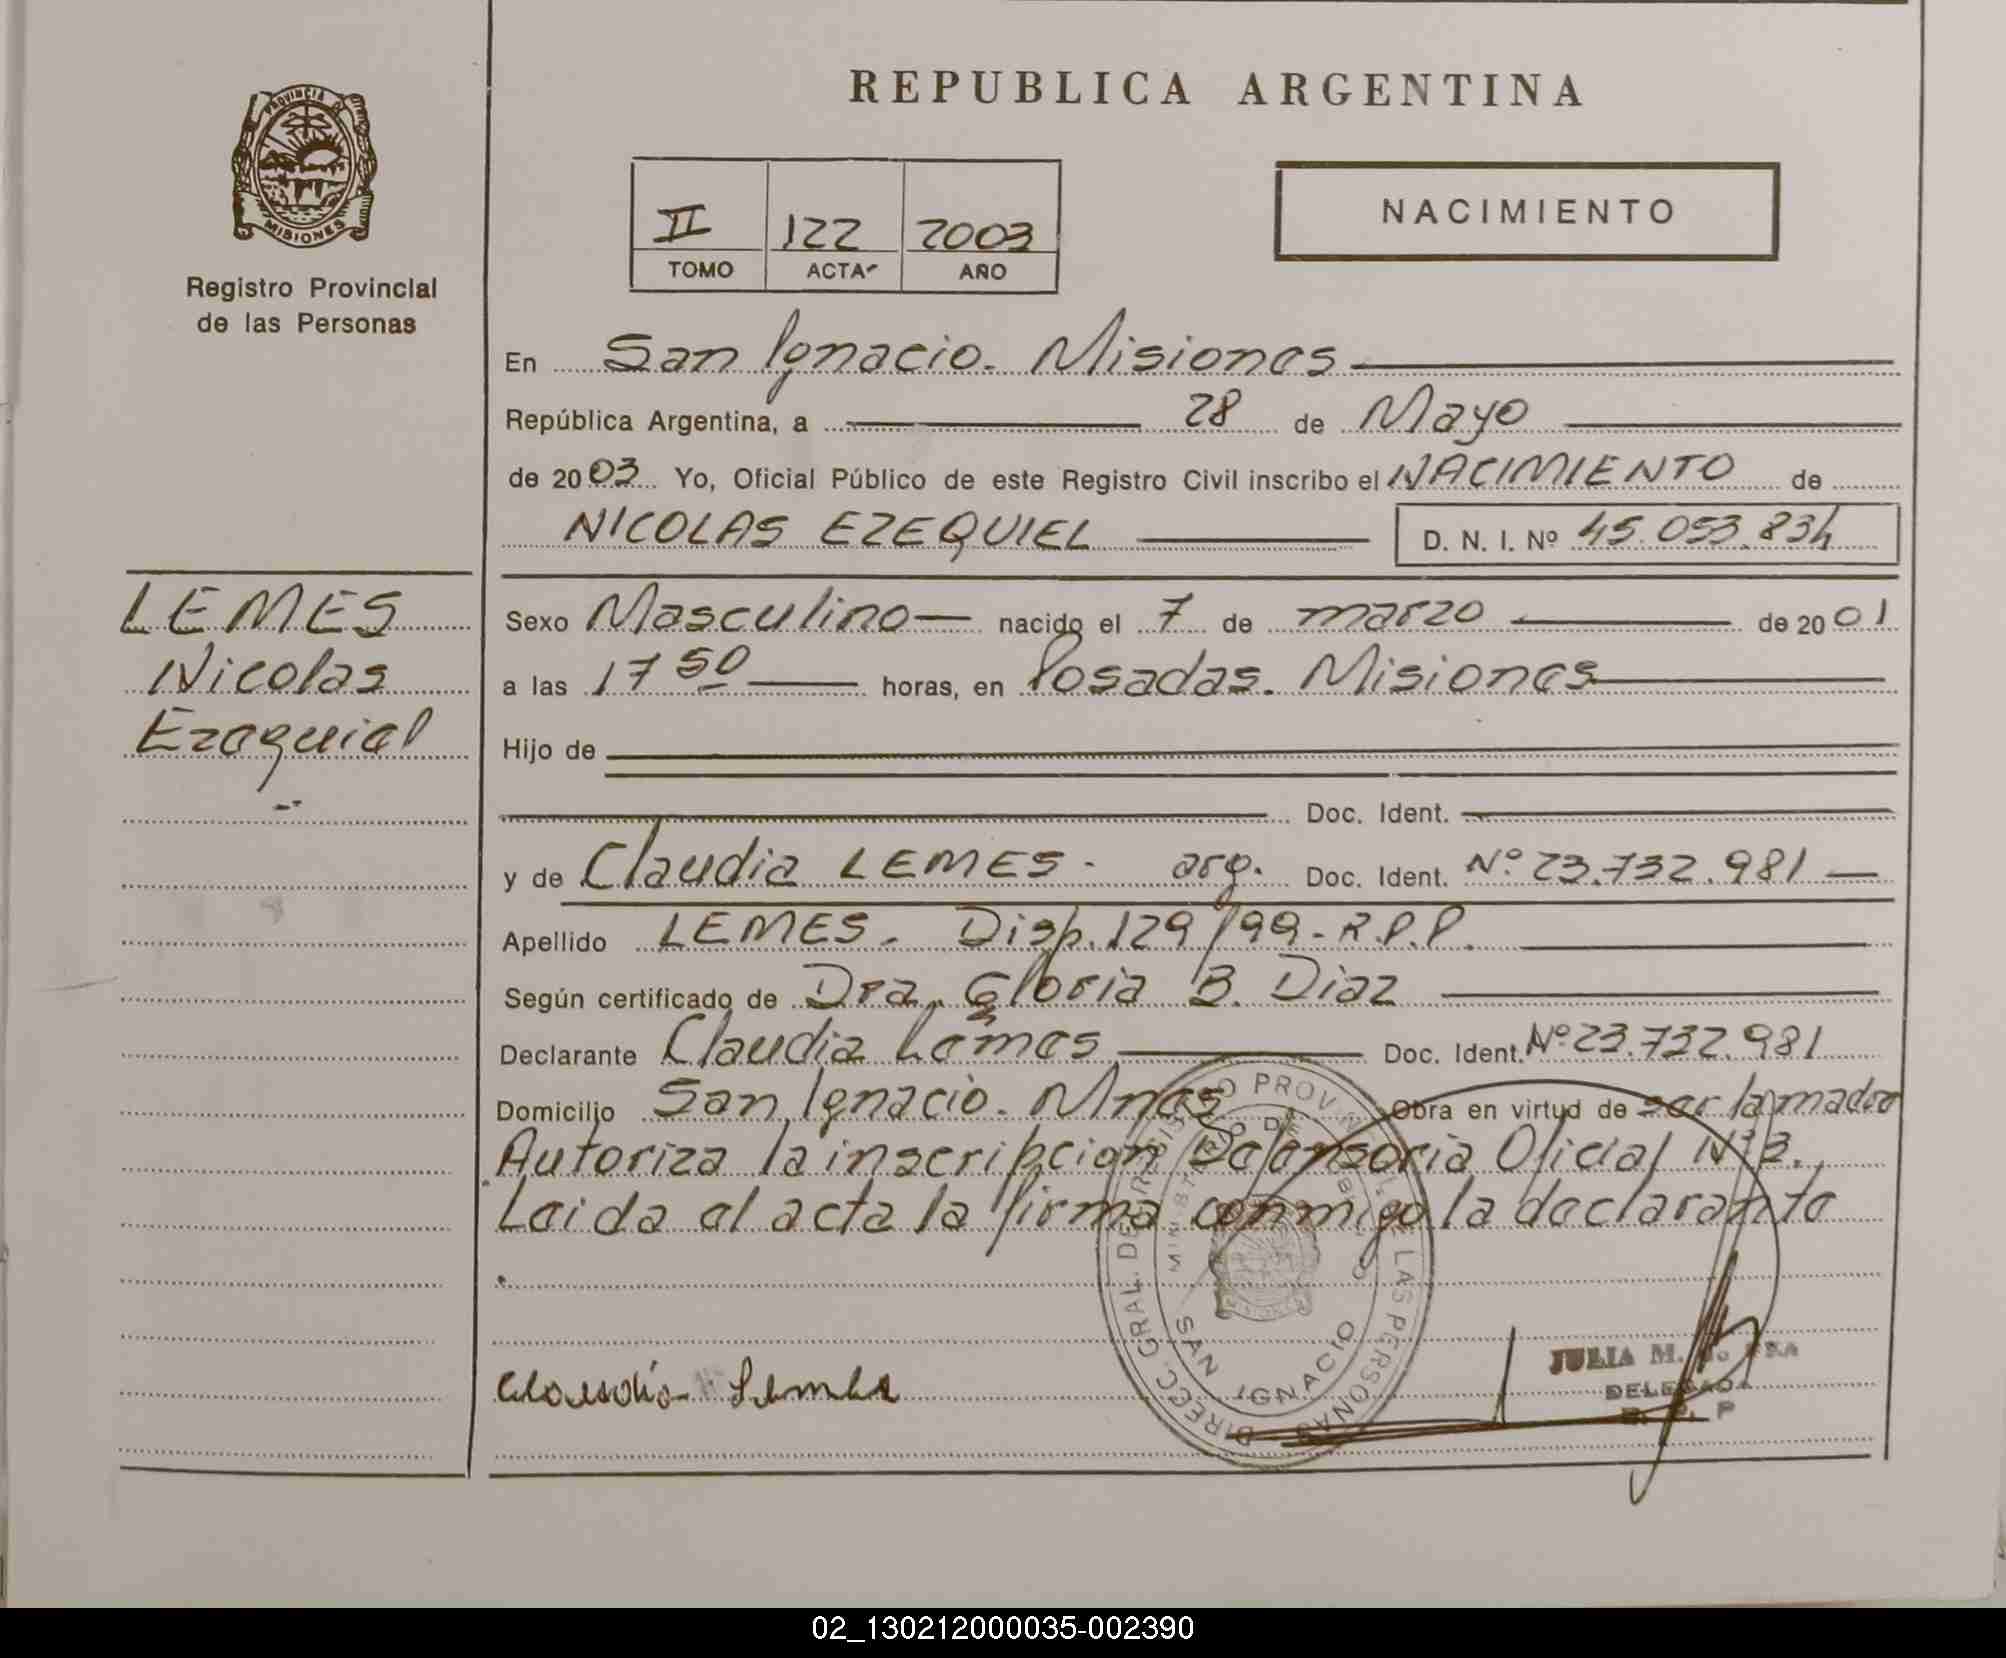 REPUBLICA ARGENTINA
PROVINCIA DE
MISIONES
Registro Provincial
de las Personas
II 122 2003
TOMO ACTA AÑO
NACIMIENTO
En San Ignacio. Misiones
República Argentina, a 28 de Mayo
de 2003 Yo, Oficial Público de este Registro Civil inscribo el NACIMIENTO de
NICOLAS EZEQUIEL D. N. I. Nº 45.053.834
LEMES
Nicolas
Ezequiel
Sexo Masculino nacido el 7 de marzo de 2001
a las 17 50 horas, en Posadas. Misiones
Hijo de
Doc. Ident.
y de Claudia LEMES - arg. Doc. Ident. Nº 23.732.981
Apellido LEMES. Disp. 129/99 - R.P.P.
Según certificado de Dra. Gloria B. Diaz
Declarante Claudia Lemes Doc. Ident. Nº 23.732.981
Domicilio San Ignacio. Mnes Obra en virtud de ser la madre
Autoriza la inscripcion Defensoria Oficial Nº 3.
Leida el acta la firma conmigo la declarante
Claudia Lemes
DIREC. GRAL. DE REGISTRO PROVINCIAL DE LAS PERSONAS
SAN IGNACIO
MISIONES
JULIA M.
DELEGADA
R. P. P
02_130212000035-002390